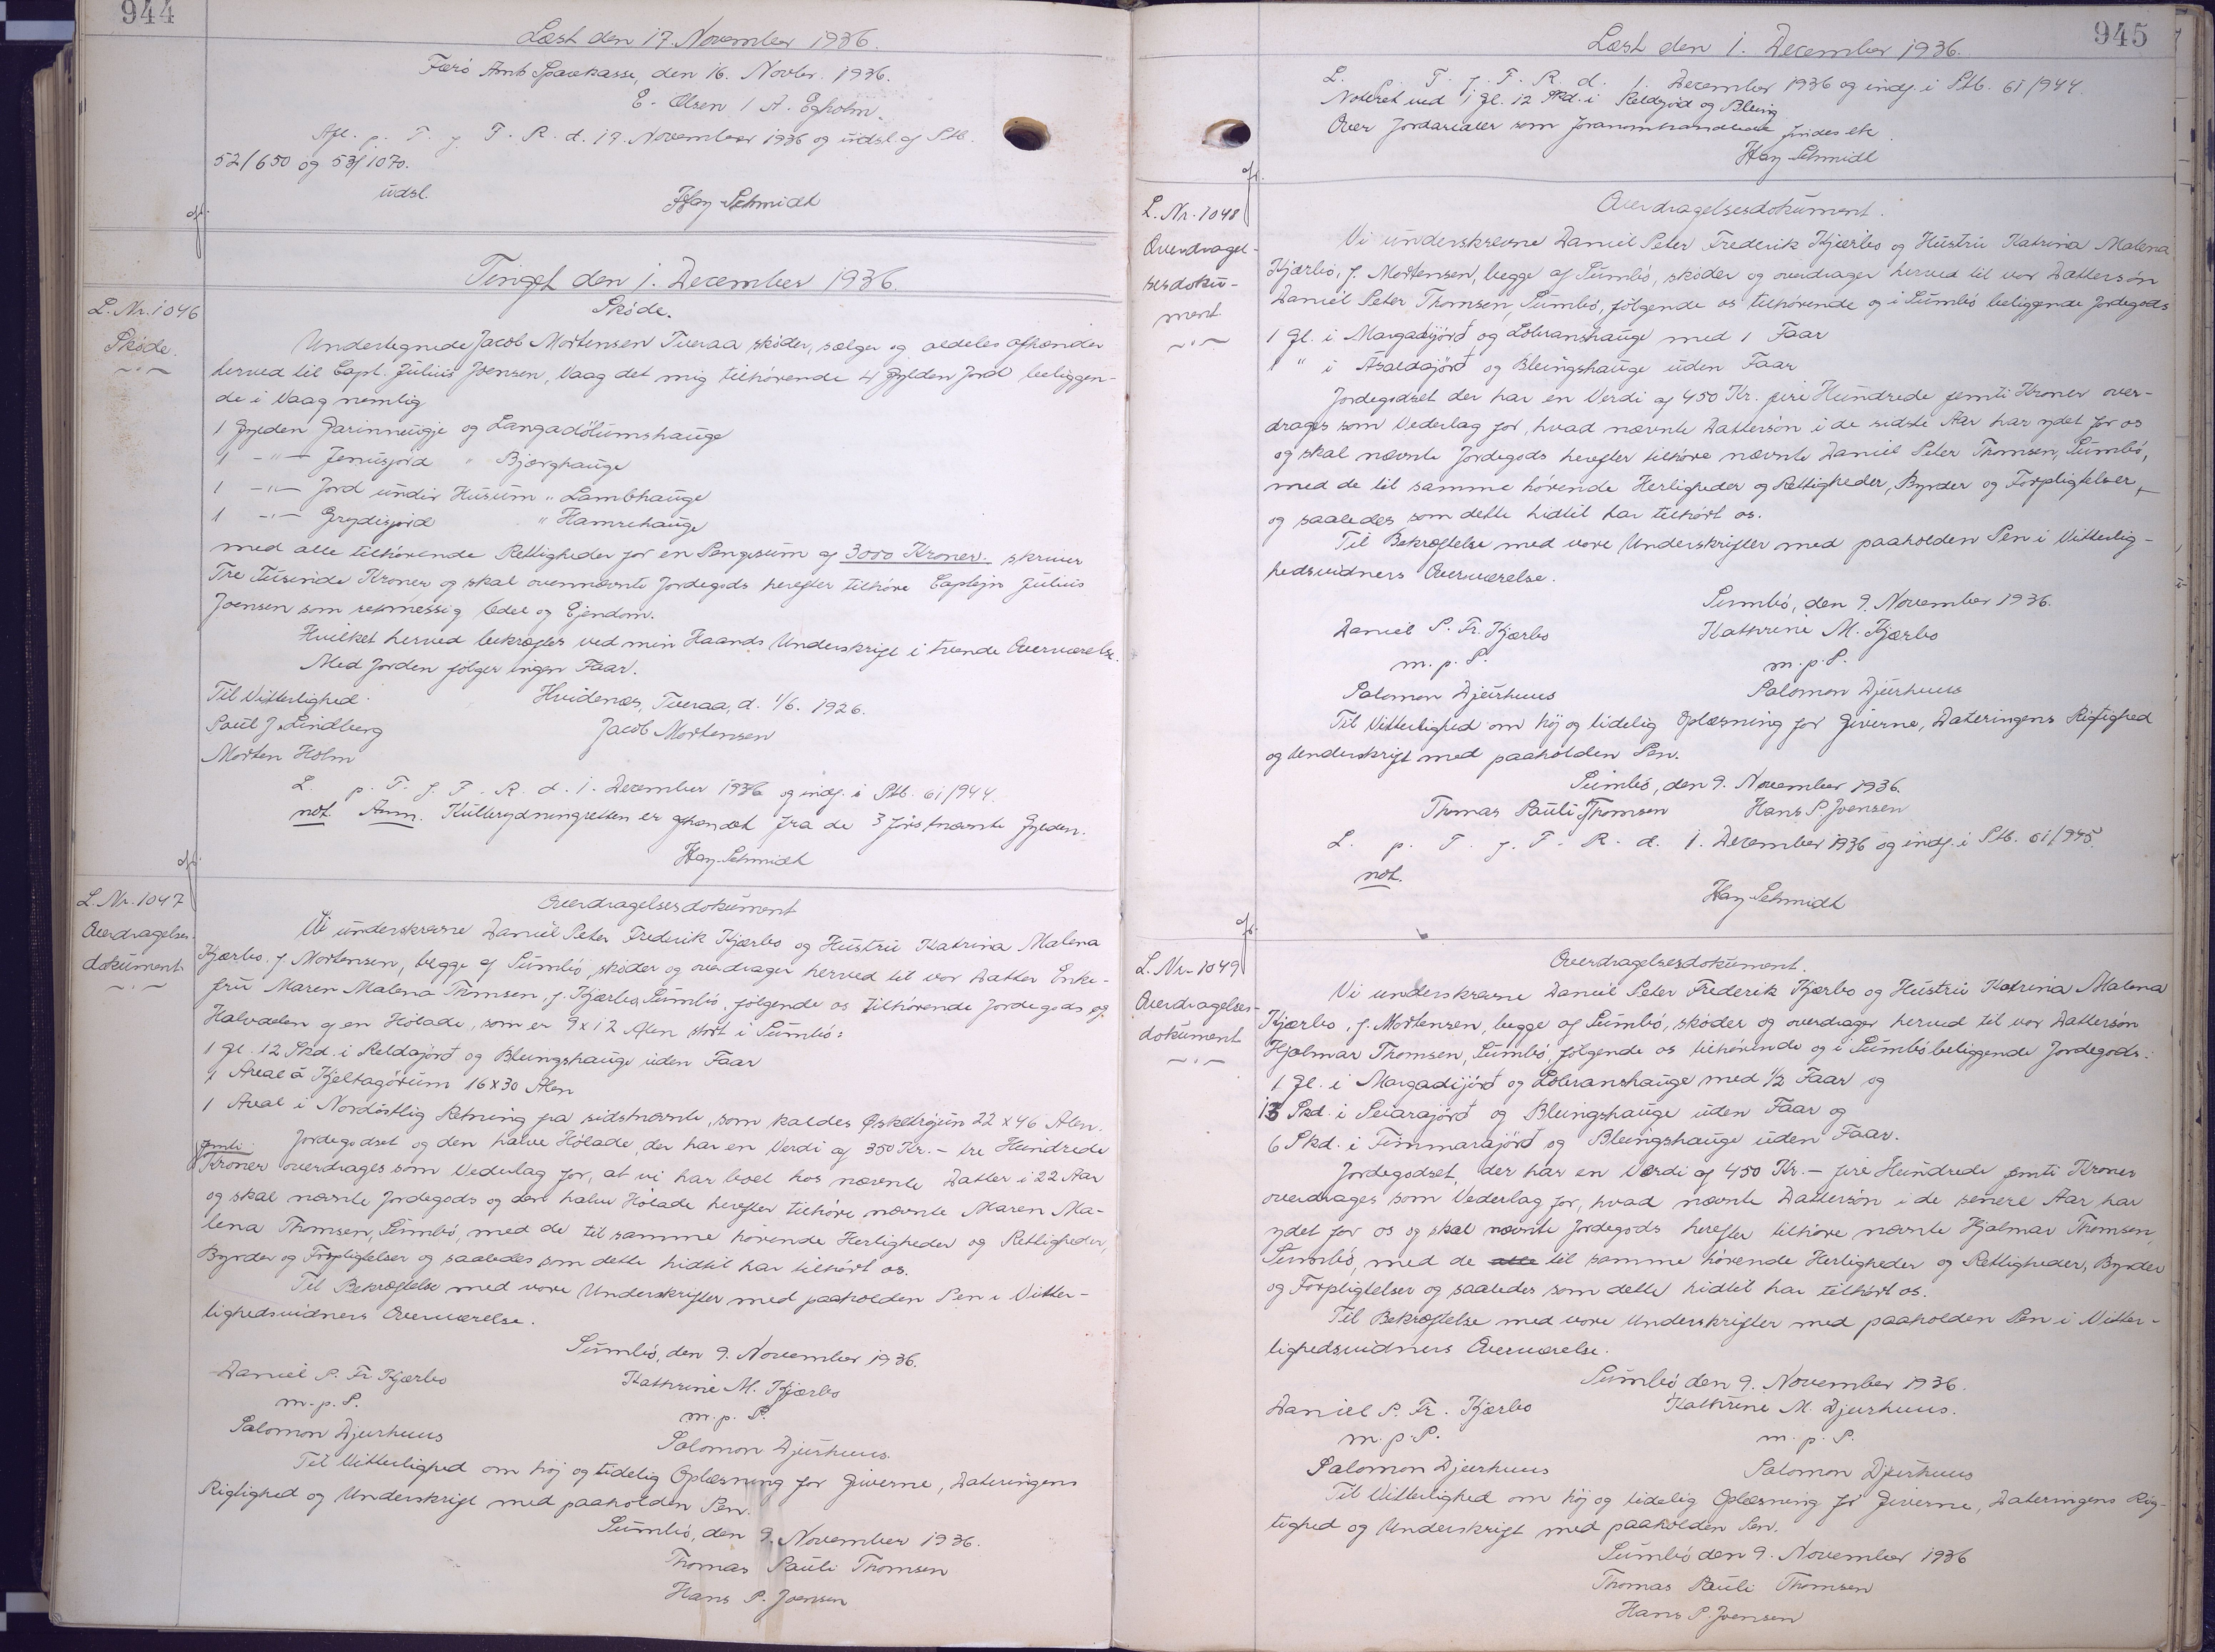 944
Læst den 17. November 1936.
Færö Amts Sparekasse, den 16. Novbr. 1936.
E. Olsen / A. Egholm.
Afl. p. T. f. F. R. d. 17. November 1936 og udsl. af Ptb.
52/650 og 53/1070.
udsl.
Hay-Schmidt
Tinget den 1. December 1936.
L. Nr. 1046
Skøde.
Skøde.
Undertegnede Jacob Mortensen Tveraa skøder, sælger og aldeles afhænder
herved til Capt. Julius Joensen, Vaag det mig tilhörende 4 Gylden Jord beliggen-
de i Vaag nemlig
1 Gylden Garinneugje og Langadölumshauge
1 -"- Jenusjord " Bjarghauge
1 -"- Jord undir Husum " Lambhauge
1 -"- Grydisjord " Hamrehauge
med alle tilhörende Rettigheder for en Pengesum af 3000 Kroner. skriver
Tre Tusinde Kroner og skal ovennævnte Jordegods herefter tilhöre Captejn Julius
Joensen som retmessig Odel og Ejendom.
Hvilket herved bekræftes ved min Haands Underskrift i tvende Overværelse.
Med Jorden følger ingen Faar.
Til Vitterlighed. Hvidenæs, Tveraa, d. 1/6. 1926.
Poul J. Lindberg Jacob Mortensen
Morten Holm
L. p. T. f. F. R. d. 1. December 1936 og indf. i Ptb. 61/944.
not. Anm. Kulbrydningretten er afhændet fra de 3 förstnævnte Gylden.
Hay-Schmidt
L. Nr. 1047
Overdragelses-
dokument
Overdragelsesdokument
Vi underskrevne Daniel Peter Frederik Kjærbo og Hustru Katrina Malena
Kjærbo, f. Mortensen, begge af Sumbö, skøder og overdrager herved til vor Datter Enke-
fru Maren Malena Thomsen, f. Kjærbo, Sumbö, følgende os tilhörende Jordegods og
Halvdelen af en Hölade, som er 9 x 12 Alen stort i Sumbö:
1 Gl. 12 Skd. i Keldajörð og Bleingshauge uden Faar
1 Areal á Kjeltagórum 16 x 30 Alen
1 Areal i Nordöstlig Retning fra sidstnævnte, som kaldes Øskutrøjun 22 x 46 Alen.
Jordegodset og den halve Hölade, der har en Verdi af 350 Kr. - tre Hundrede
femti
Kroner overdrages som Vederlag for, at vi har boet hos nævnte Datter i 22 Aar
og skal nævnte Jordegods og den halve Hölade herefter tilhöre nævnte Maren Ma-
lena Thomsen, Sumbö, med de til samme hörende Herligheder og Rettigheder,
Byrder og Forpligtelser og saaledes som dette hidtil har tilhört os.
Til Bekræftelse med vore Underskrifter med paaholden Pen i Vitter-
lighedsvidners Overværelse.
Sumbö, den 9. November 1936.
Daniel P. Fr. Kjærbo Kathrine M. Kjærbo
m. p. P. m. p. P.
Salomon Djurhuus Salomon Djurhuus.
Til Vitterlighed om höj og tidelig Oplæsning for Giverne, Dateringens
Rigtighed og Underskrift med paaholden Pen.
Sumbö, den 9. November 1936.
Thomas Pauli Thomsen
Hans P. Joensen
945
Læst den 1. December 1936.
L. p. T. f. F. R. d. 1. December 1936 og indf. i Ptb. 61/944.
Noteret ved 1 gl. 12 Skd. i Keldejord og Bleing
Over Jordarealer som foranomhandlede findes ik
Hay-Schmidt
L. Nr. 1048
Overdragel-
sesdoku-
ment
Overdragelsesdokument.
Vi underskrevne Daniel Peter Frederik Kjærbo og Hustru Katrina Malena
Kjærbo, f. Mortensen, begge af Sumbö, skøder og overdrager herved til vor Dattersön
Daniel Peter Thomsen, Sumbö, følgende os tilhörende og i Sumbö beliggende Jordegods
1 Gl. i Margadijörð og Lobranshauge med 1 Faar
1 " i Asaldajörð og Bleingshauge uden Faar
Jordegodset der har en Verdi af 450 Kr. fire Hundrede femti Kroner over-
drages som Vederlag for, hvad nævnte Dattersön i de sidste Aar har ydet for os
og skal nævnte Jordegods herefter tilhöre nævnte Daniel Peter Thomsen, Sumbö,
med de til samme hörende Herligheder og Rettigheder, Byrder og Forpligtelser,
og saaledes som dette hidtil har tilhört os.
Til Bekræftelse med vore Underskrifter med paaholden Pen i Vitterlig-
hedsvidners Overværelse.
Sumbö, den 9. November 1936.
Daniel P. Fr. Kjærbo Kathrine M. Kjærbo
m. p. P. m. p. P.
Salomon Djurhuus Salomon Djurhuus
Til Vitterlighed om höj og tidelig Oplæsning for Giverne, Dateringens Rigtighed
og Underskrift med paaholden Pen.
Sumbö, den 9. November 1936.
Thomas Pauli Thomsen Hans P. Joensen
L. p. T. f. F. R. d. 1. December 1936 og indf. i Ptb. 61/945.
not.
Hay-Schmidt
L. Nr. 1049
Overdragelses-
dokument
Overdragelsesdokument.
Vi underskrevne Daniel Peter Frederik Kjærbo og Hustru Katrina Malena
Kjærbo, f. Mortensen, begge af Sumbö, skøder og overdrager herved til vor Dattersön
Hjalmar Thomsen, Sumbö, følgende os tilhörende og i Sumbö beliggende Jordegods:
1 Gl. i Margadijörð og Lobranshauge med 1/2 Faar og
13 Skd. i Seiarajörð og Bleingshauge uden Faar og
6 Skd. i Timmarajörð og Bleingshauge uden Faar.
Jordegodset, der har en Værdi af 450 Kr. - fire Hundrede femti Kroner
overdrages som Vederlag for, hvad nævnte Dattersön i de senere Aar har
ydet for os og skal nævnte Jordegods herefter tilhöre nævnte Hjalmar Thomsen,
Sumbö, med de alle til samme hörende Herligheder og Rettigheder, Byrder
og Forpligtelser og saaledes som dette hidtil har tilhört os.
Til Bekræftelse med vore Underskrifter med paaholden Pen i Vitter-
lighedsvidners Overværelse.
Sumbö den 9. November 1936.
Daniel P. Fr. Kjærbo Kathrine M. Djurhuus.
m. p. P. m. p. P.
Salomon Djurhuus Salomon Djurhuus
Til Vitterlighed om höj og tidelig Oplæsning for Giverne, Dateringens Rig-
tighed og Underskrift med paaholden Pen.
Sumbö den 9. November 1936
Thomas Pauli Thomsen
Hans P. Joensen